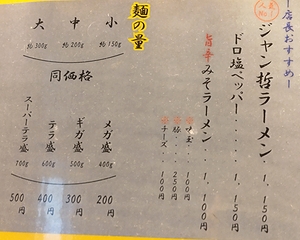 店長おすすめ
人気No.1
ジャン哲ラーメン・1,150円
ドロ塩ペッパー・・・・1,150円
旨辛みそラーメン・・・1,100円
味玉・・・100円
豚・・・250円
チーズ・・100円
麺の量
小 約150g
中 約200g
大 約300g
同価格
メガ盛 400g 200円
ギガ盛 500g 300円
テラ盛 600g 400円
スーパーテラ盛 700g 500円